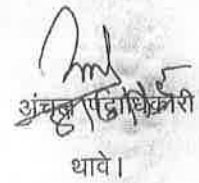 अंचल पदाधिकारी
थावे।